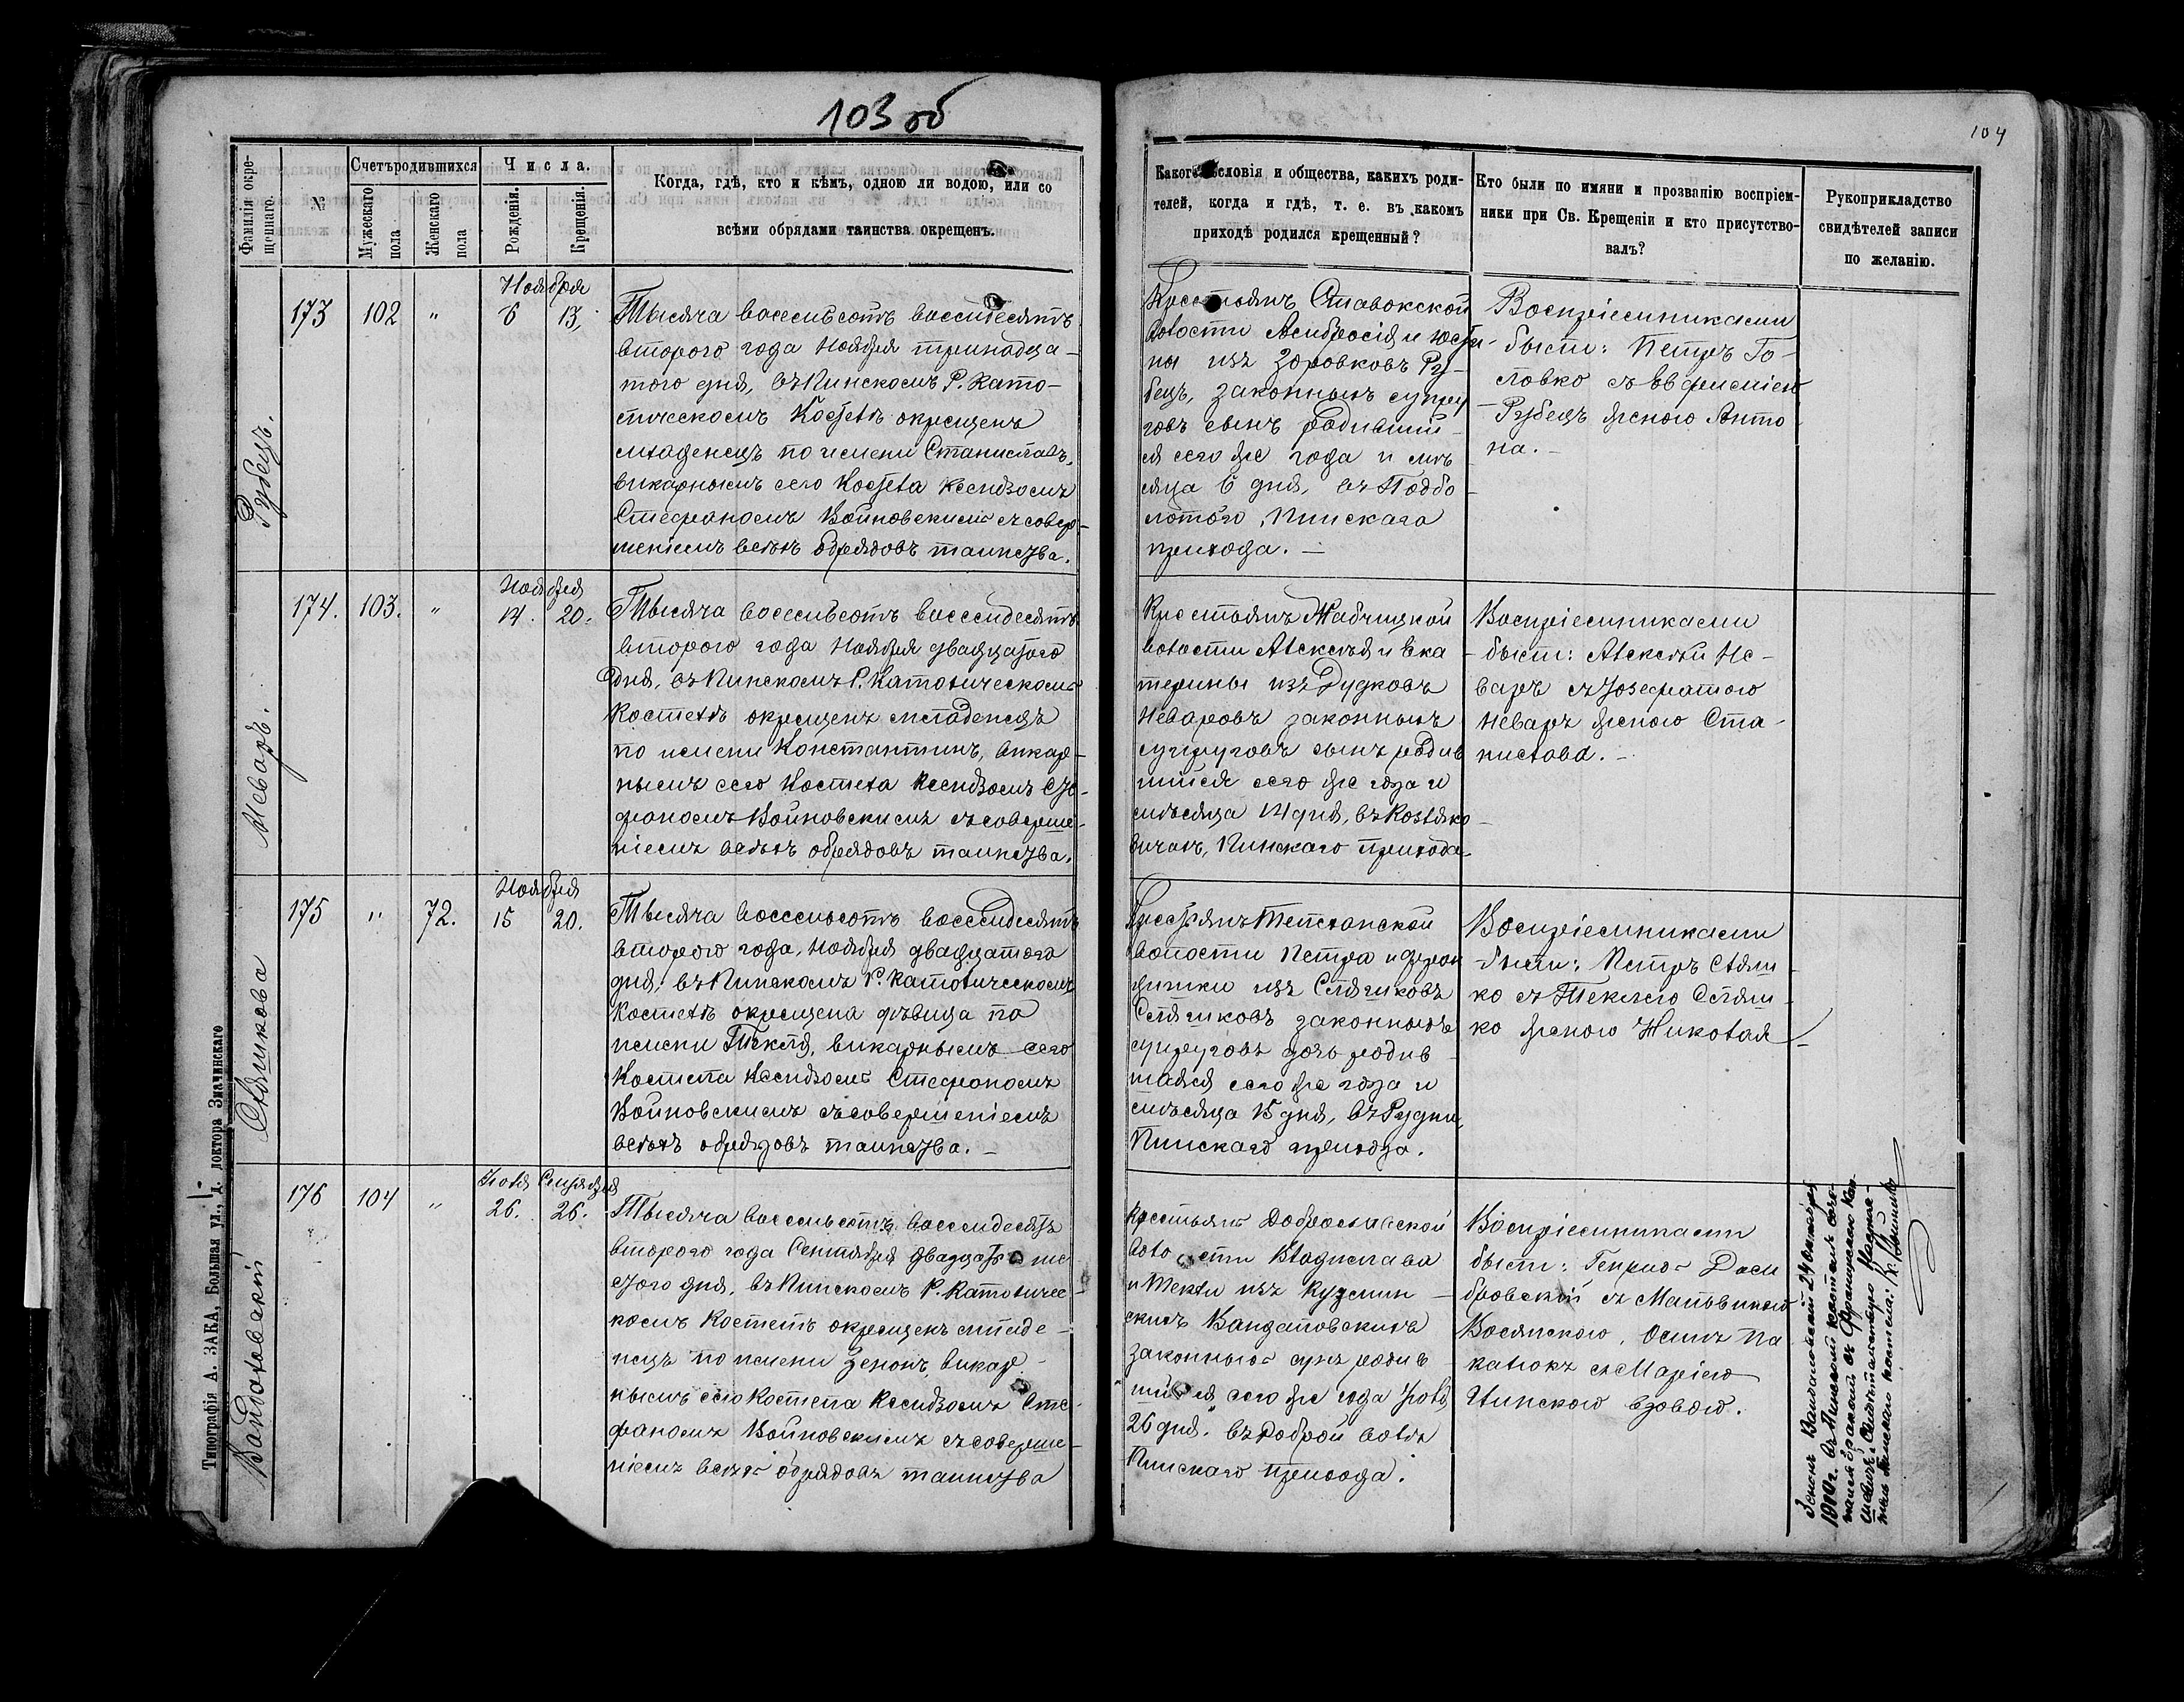 103 об
104
Фамилія окре-
щеннаго.
№
Счетъ родившихся
Мужескаго
пола
Женскаго
пола
Числа.
Рожденія.
Крещенія.
Когда, гдѣ, кто и кѣмъ, одною ли водою, или со
всѣми обрядами таинства окрещенъ.
Какого сословія и общества, какихъ роди-
телей, когда и гдѣ, т. е. въ какомъ
приходѣ родился крещенный?
Кто были по имяни и прозванію воспріем-
ники при Св. Крещеніи и кто присутство-
валъ?
Рукоприкладство
свидѣтелей записи
по желанію.
Рубецъ.
173 102 " Ноября
6 13,
Тысяча восемьсотъ восемьдесятъ
второго года Ноября тринадца-
того дня, въ Пинскомъ Р. Като-
лическомъ Костелѣ окрещенъ
младенецъ по имени Станиславъ,
викарнымъ сего Костела Ксендзомъ
Стефаномъ Войновскимъ съ совер-
шеніемъ всѣхъ обрядовъ таинства.
Крестьянъ Ставокской
волости Амбросія и Юсти-
ны изъ Головковъ Ру-
бецъ, законныхъ супру
говъ сынъ родивший-
ся сего же года и мѣ
сяца 6 дня, въ Подбо
лотьѣ, Пинскаго
прихода. —
Воспріемниками
были: Петръ Го-
ловко съ Евфиміею
Рубецъ женою Анто
на. —
Неваръ.
174. 103. " Ноября
14. 20.
Тысяча восемьсотъ восемьдесятъ
второго года Ноября двадцатого
дня, въ Пинскомъ Р. Католическомъ
Костелѣ окрещенъ младенецъ
по имени Константинъ, викар-
нымъ сего Костела Ксендзомъ Сте-
фаномъ Войновскимъ съ соверше-
ніемъ всѣхъ обрядовъ таинства.
Крестьянъ Жабчицкой
волости Алексѣя и Ека-
терины изъ Дудковъ
Неваровъ законныхъ
супруговъ сынъ родив
шійся сего же года и
мѣсяца 14 дня, въ Козляко-
вичахъ, Пинскаго прихода.
Воспріемниками
были: Алексѣй Не-
варъ съ Іозефатою
Неваръ женою Ста-
нислава. —
Сляшкова
175 " 72. Ноября
15 20.
Тысяча восемьсотъ восемьдесятъ
второго года, Ноября двадцатого
дня, въ Пинскомъ Р. Католическомъ
Костелѣ окрещена дѣвица по
имени Текля, викарнымъ сего
Костела Ксендзомъ Стефаномъ
Войновскимъ съ совершеніемъ
всѣхъ обрядовъ таинства. —
Крестьянъ Телеханской
волости Петра и Фран
цишки изъ Сляшковъ
Сляшковъ законныхъ
супруговъ дочь родив
шаяся сего же года и
мѣсяца 15 дня, въ Рудни,
Пинскаго прихода.
Воспріемниками
были: Петръ Сляш-
ко съ Теклею Сляш-
ко женою Николая —
Вандаловскій
176 104 " Іюля Сентября
26. 26.
Тысяча восемьсотъ восемьдесятъ
второго года Сентября двадцать ше
стого дня, въ Пинскомъ Р. Католичес-
комъ Костелѣ окрещенъ младе-
нецъ по имени Зенонъ, викар-
нымъ сего Костела Ксендзомъ Сте-
фаномъ Войновскимъ съ соверше-
ніемъ всѣхъ обрядовъ таинства
Крестьянъ Доброславской
волости Владислава
и Текли изъ Кузмин-
скихъ Вандаловскихъ
законныхъ супр родив
шійся сего же года Іюля
26 дня, въ Доброй волѣ
Пинскаго прихода.
Воспріемниками
были: Генрихъ Дом
бровскій съ Мальвиною
Восинскою, Осипъ Па
калюкъ съ Маріею
Глинскою вдовою.
Зенонъ Вандаловскій 24 Октября
въ Пинскомъ костелѣ соче-
Типографія А. ЗАКА, Большая ул., д. доктора Значинскаго